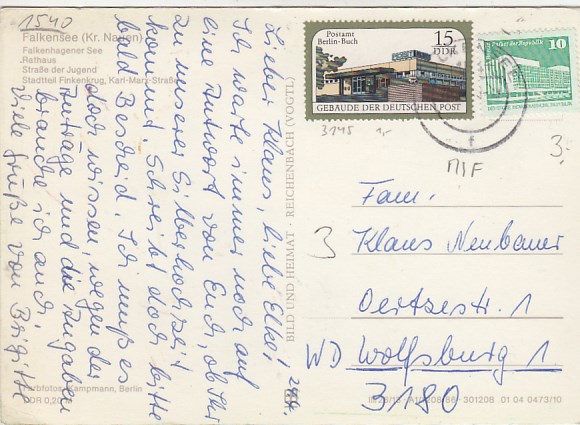 1540
Falkensee (Kr. Nauen)
Falkenhagener See
Rathaus
Straße der Jugend
Stadtteil Finkenkrug, Karl-Marx-Straße
Lieber Klaus, liebe Elke!
Ich warte immer noch auf
eine Antwort von Euch, ob Ihr
zu unserer Silberhochzeit
kommt. Schreibt doch bitte
bald Bescheid. Ich muß es
doch wissen, wegen der
Anträge und die Angaben
brauche ich auch.
Viele Grüße von Brigitte
Farbfotos: Kampmann, Berlin
DDR 0,20 M
BILD UND HEIMAT · REICHENBACH (VOGTL)
Postamt
Berlin-Buch
15
DDR
GEBÄUDE DER DEUTSCHEN POST
Palast der Republik
10
DDR
3145 1,-
MIF
3,-
3
Fam.
Klaus Neubauer
Oertzestr. 1
WD Wolfsburg 1
3180
301208 01 04 0473/10